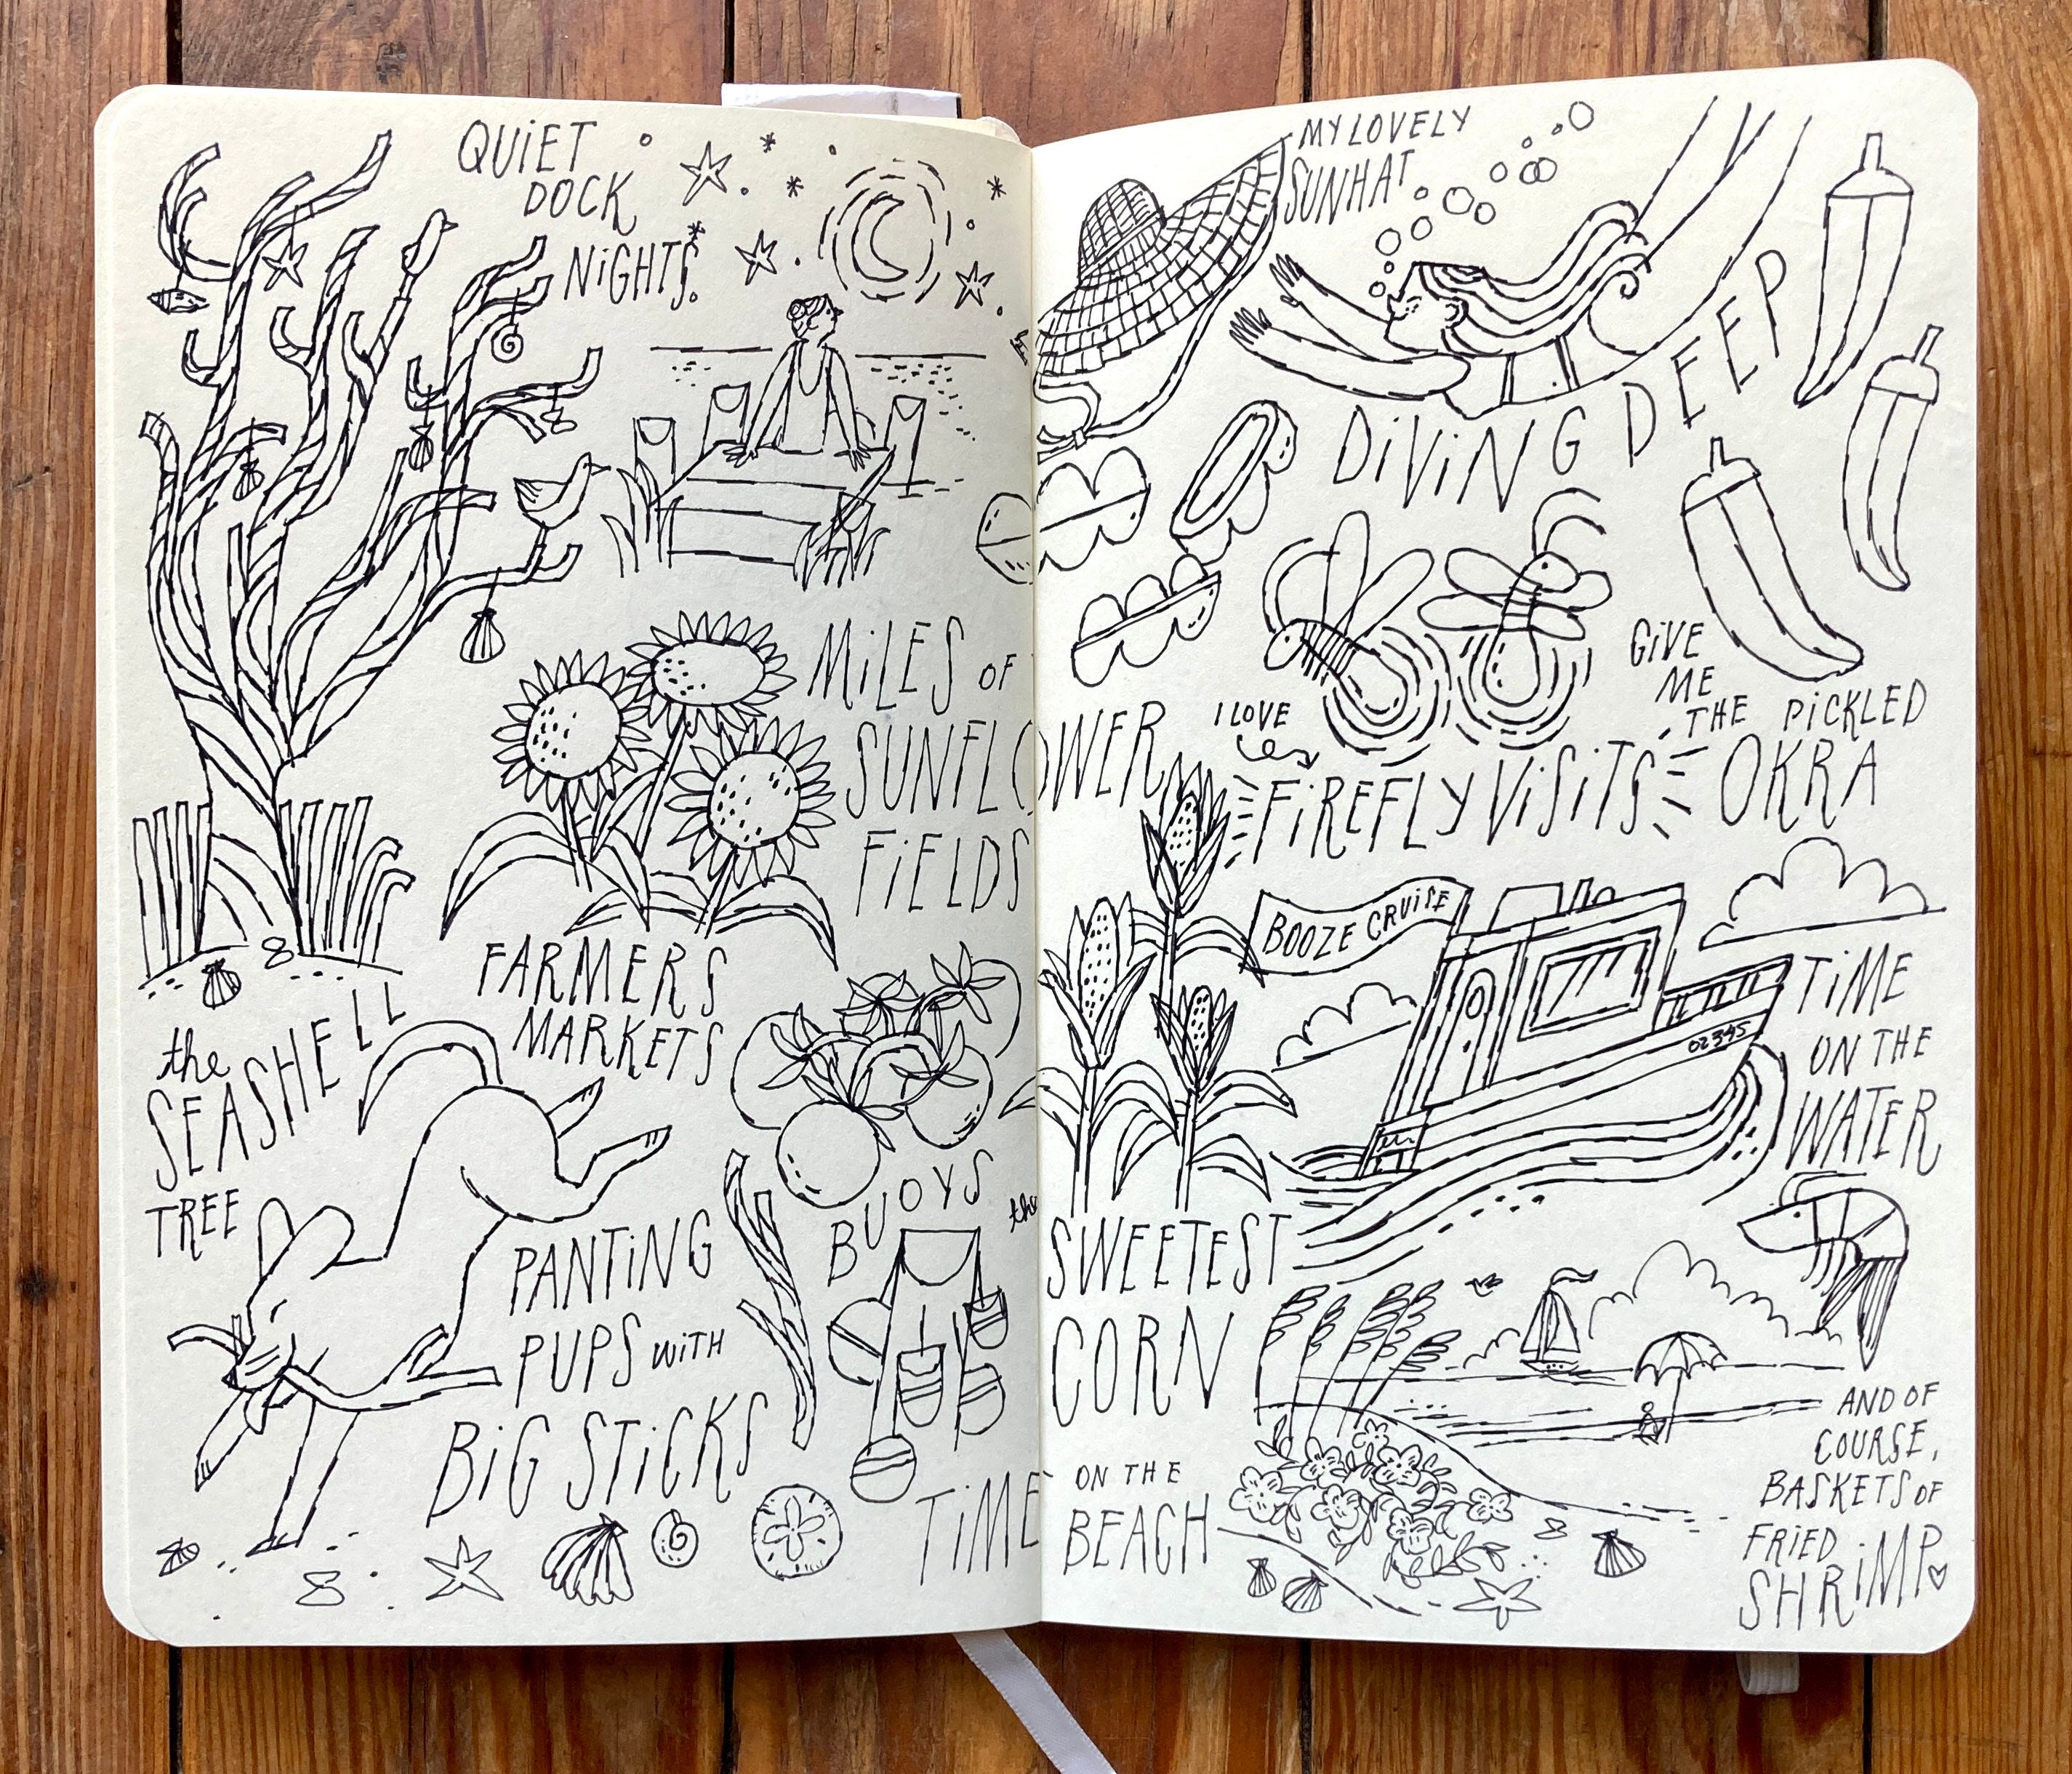 QUiET
DOCK
NiGHTS.
MiLES OF
SUNFLOWER
FiELDS
the
SEASHELL
TREE
FARMERS
MARKETS
PANTiNG
PUPS WiTH
BiG STiCKS
BUOYS
MY LOVELY
SUNHAT
DiViNG DEEP
I LOVE
FiREFLY ViSiTS
GiVE
ME
THE PiCKLED
OKRA
BOOZE CRUiSE
02345
TiME
ON THE
WATER
the
SWEETEST
CORN
TiME ON THE
BEACH
AND OF
COURSE,
BASKETS OF
FRiED
SHRiMP